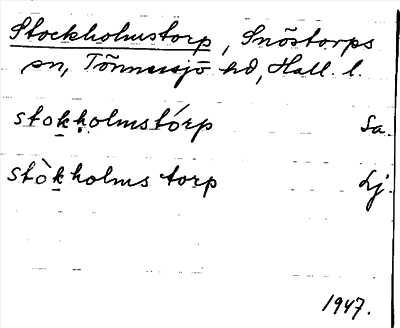 Stockholmstorp, Snöstorps
sn, Tönnersjö hd, Hall. l.
stokholmstórp Sa.
stòkholms torp Lj.
1947.